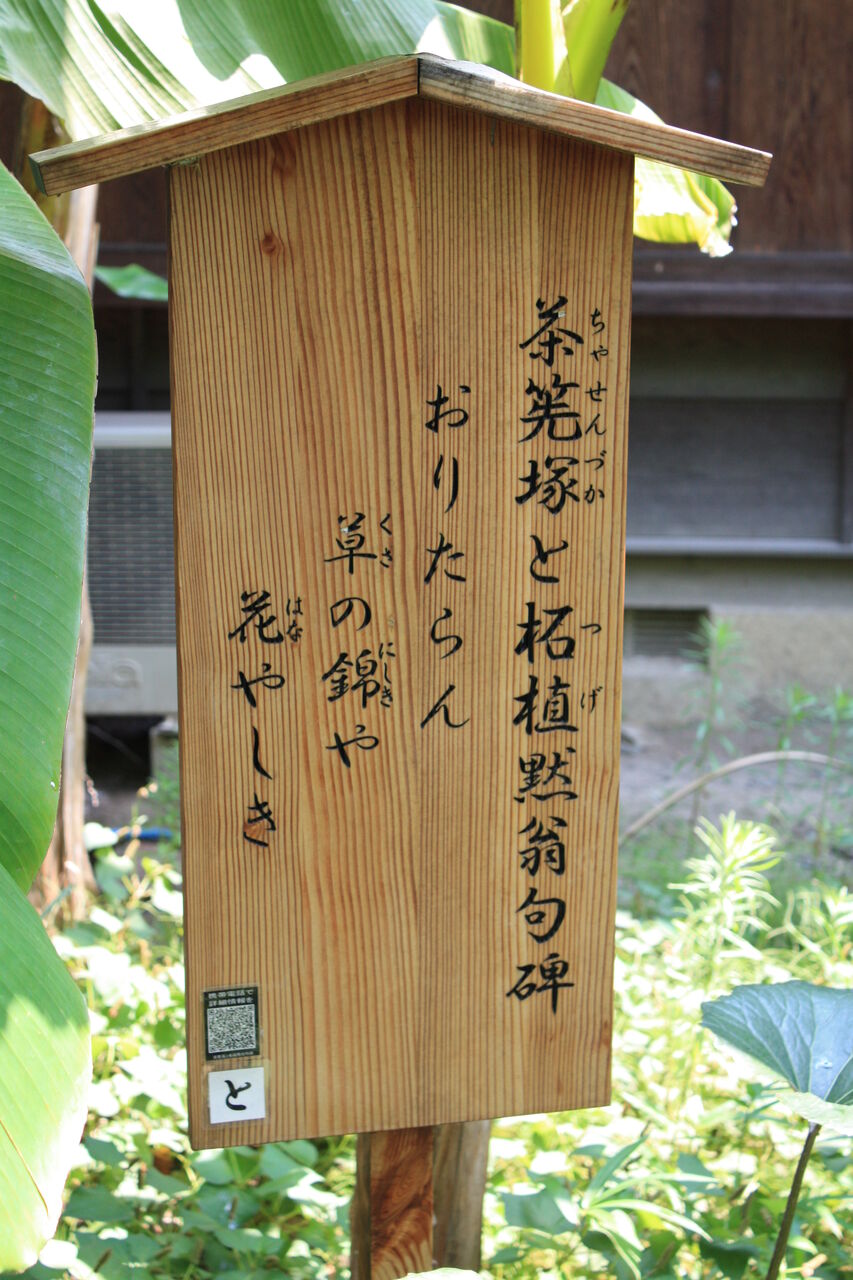 茶筅塚と柘植黙翁句碑
ちゃせんづか
つげ
おりたらん
草の錦や
くさ
にしき
花やしき
はな
携帯電話で
詳細情報を
と